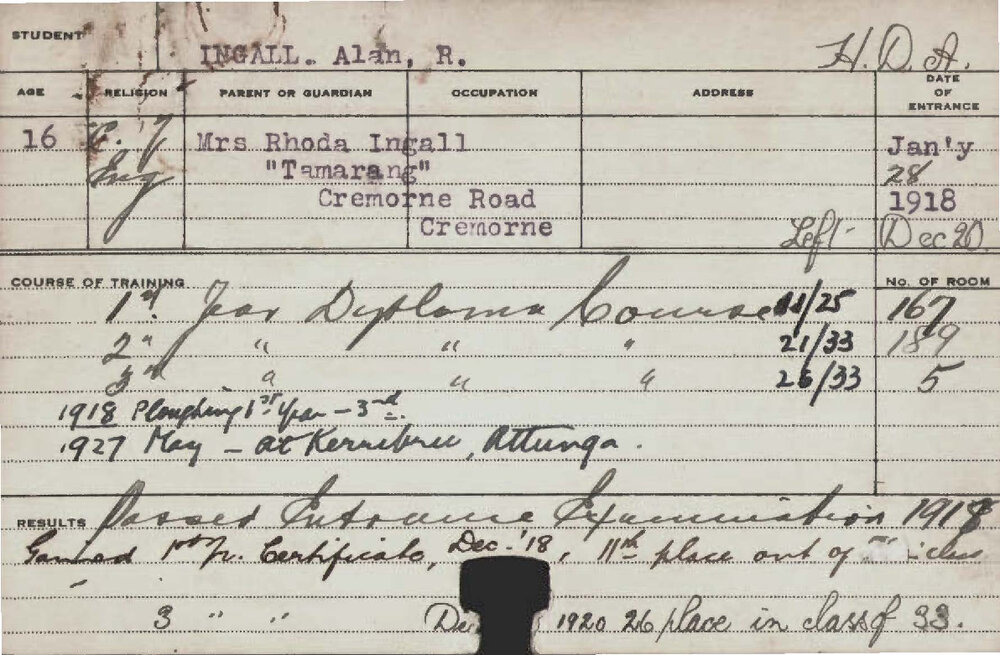 STUDENT INGALL. Alan, R. H. D. A.
AGE RELIGION PARENT OR GUARDIAN OCCUPATION ADDRESS DATE OF ENTRANCE
16 C. of Mrs Rhoda Ingall Jan'y
Eng "Tamarang" 28
Cremorne Road 1918
Cremorne Left - Dec 20
COURSE OF TRAINING No. OF ROOM
1st. Year Diploma Course 11/25 167
2" " " " 21/33 189
3rd " " " 26/33 5
1918 Ploughing 1st Year - 3rd.
1927 May - at Attunga.
RESULTS Passed Entrance Examination 1918
Gained 1st Yr. Certificate, Dec. '18, 11th place out of
3 " " 1920 26 place in class of 33.